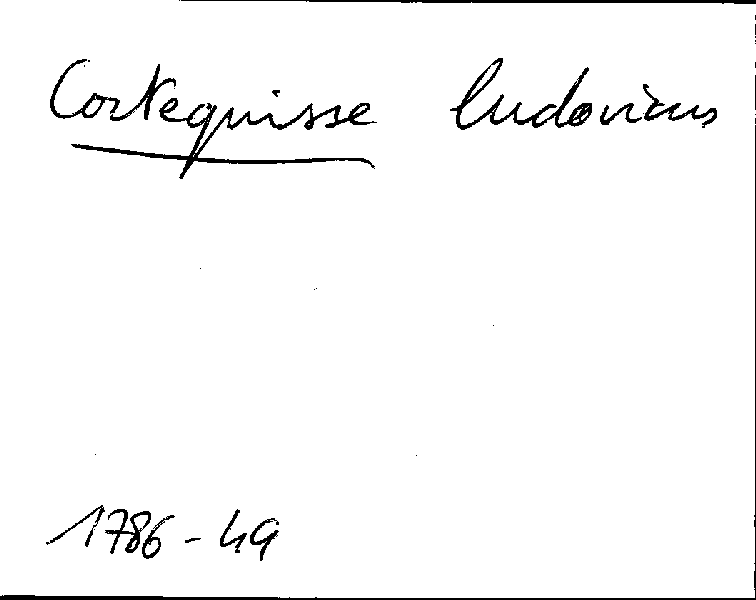 Cortequisse Ludovicus
1786-49